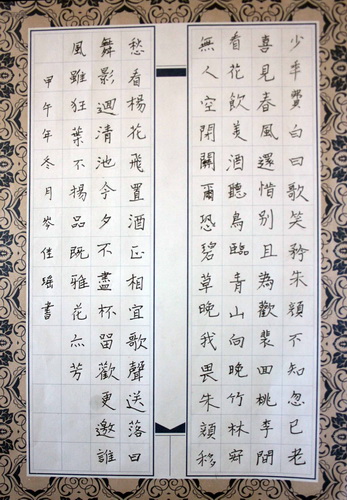 少年費白日歌笑矜朱顏不知忽已老
喜見春風還惜別且為歡裴回桃李間
看花飲美酒聽鳥臨青山向晚竹林寂
無人空閉關爾恐碧草晚我畏朱顏移
愁看楊花飛置酒正相宜歌聲送落日
舞影迴清池今夕不盡杯留歡更邀誰
風雖狂葉不揚品既雅花亦芳
甲午年冬月岑佳瑤書